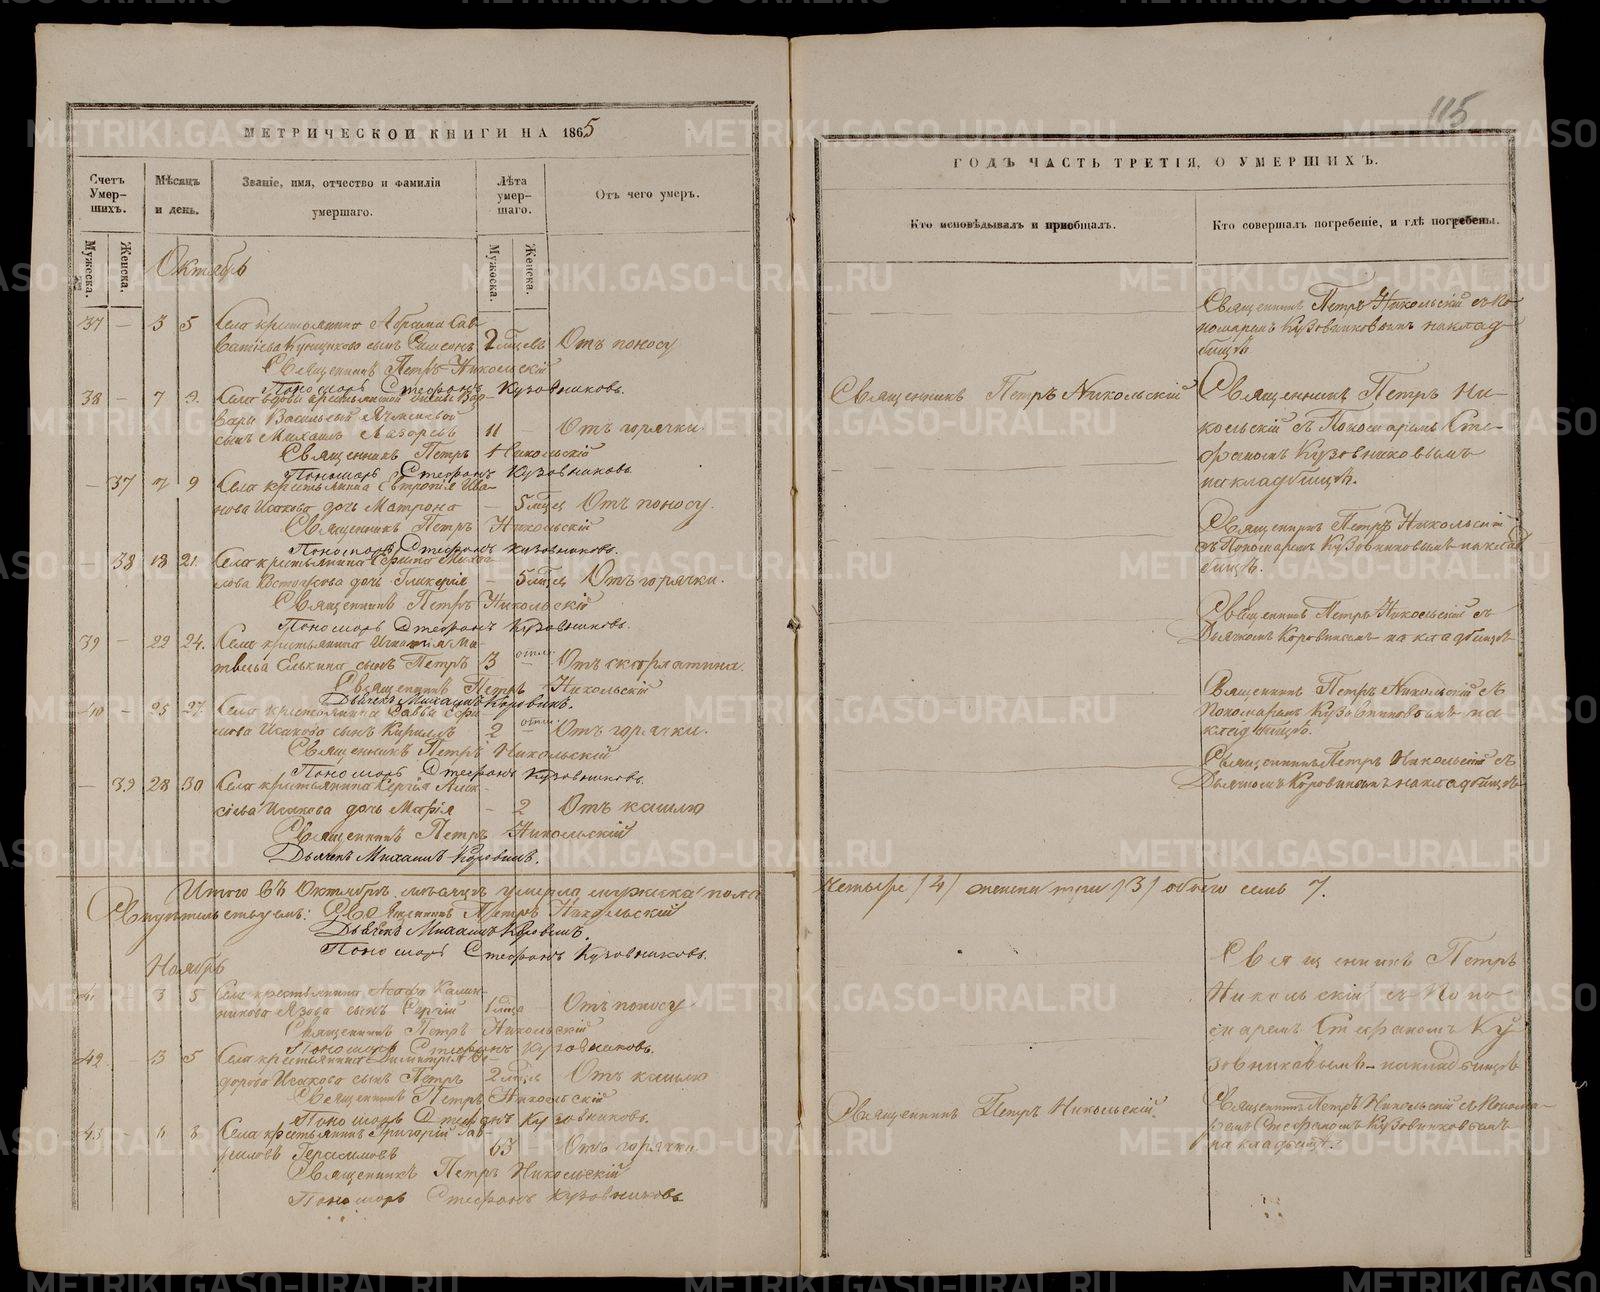 МЕТРИЧЕСКОЙ КНИГИ НА 1865
Счетъ Умершихъ.
Мѣсяцъ и день.
Званіе, имя, отчество и фамилія умершаго.
Лѣта умершаго.
Отъ чего умеръ.
Мужеска.
Женска.
Мужеска.
Женска.
Октябрь
37 — 3 5 Села крестьянина Абрама Сав-
ватіева Куницкова сынъ Самсонъ 2 мѣсцвъ Отъ поносу
Священникъ Петръ Никольскій
Пономарь Стефанъ Кузовниковъ.
38 — 7 9. Села вдовы крестьянской жены Вар-
вары Васильевой
сынъ Михаилъ Лазоревъ 11 — Отъ горячки.
Священникъ Петръ Никольскій
Пономарь Стефанъ Кузовниковъ
— 37 7 9 Села крестьянина Евтропія Ива-
нова Исакова дочь Матрона — 5 мѣсц Отъ поносу.
Священникъ Петръ Никольскій
Пономарь Стефанъ Кузовниковъ.
— 38 18 21. Села крестьянина
дочь Гликерія — 5 мѣсц Отъ горячки.
Священникъ Петръ Никольскій
Пономарь Стефанъ Кузовниковъ.
39 — 22 24. Села крестьянина Игнатія Ма-
твѣева Елькина сынъ Петръ 3 Отъ скарлатина.
Священникъ Петръ Никольскій
Дьячекъ Михаилъ Коровинъ.
40 — 25 27. Села крестьянина Саввы Ефи-
мова Исакова сынъ Кириллъ 2 Отъ горячки.
Священникъ Петръ Никольскій
Пономарь Стефанъ Кузовниковъ.
— 39 28 30 Села крестьянина Сергія Алек-
сіева Исакова дочь Марія — 2 Отъ кашлю
Священникъ Петръ Никольскій
Дьячекъ Михаилъ Коровинъ.
Итого въ Октябрѣ мѣсяцѣ умерло мужеска пола
Свидѣтельствуемъ: Священникъ Петръ Никольскій
Дьячекъ Михаилъ Коровинъ.
Пономарь Стефанъ Кузовниковъ.
Ноябрь
41 3 5 Села крестьянина Іосифа Калин-
никова Язова сынъ Сергій 1 мѣсца — Отъ поносу
Священникъ Петръ Никольскій
Пономарь Стефанъ Кузовниковъ.
42 — 3 5 Села крестьянина Димитрія Ѳе-
дорова Исакова сынъ Петръ 2 мѣсць Отъ кашлю
Священникъ Петръ Никольскій
Пономарь Стефанъ Кузовниковъ.
43 6 8 Села крестьянинъ Григорій Гав-
риловъ Герасимовъ 63 Отъ горячки
Священникъ Петръ Никольскій
Пономарь Стефанъ Кузовниковъ
115
ГОДЪ ЧАСТЬ ТРЕТІЯ, О УМЕРШИХЪ.
Кто исповѣдывалъ и пріобщалъ.
Кто совершалъ погребеніе, и гдѣ погребены.
Священникъ Петръ Никольскій съ По-
номаремъ Кузовниковымъ на клад-
бищѣ
Священникъ Петръ Никольскій
Священникъ Петръ Ни-
кольскій съ Пономаремъ Сте-
фаномъ Кузовниковымъ
на кладбищѣ.
Священникъ Петръ Никольскій
съ Пономаремъ Кузовниковымъ на клад-
бищѣ.
Священникъ Петръ Никольскій съ
Дьячкомъ Коровинымъ на кладбищѣ
Священникъ Петръ Никольскій съ
Пономаремъ Кузовниковымъ на
кладбищѣ.
Священникъ Петръ Никольскій съ
Дьячкомъ Коровинымъ на кладбищѣ
четыре /4/ женска три /3/ обоего семь 7.
Священникъ Петръ
Никольскій съ Поно-
маремъ Стефаномъ Ку-
зовниковымъ на кладбищѣ
Священникъ Петръ Никольскій.
Священникъ Петръ Никольскій съ Понома-
ремъ Стефаномъ Кузовниковымъ
на кладбищѣ.
METRIKI.GASO-URAL.RU